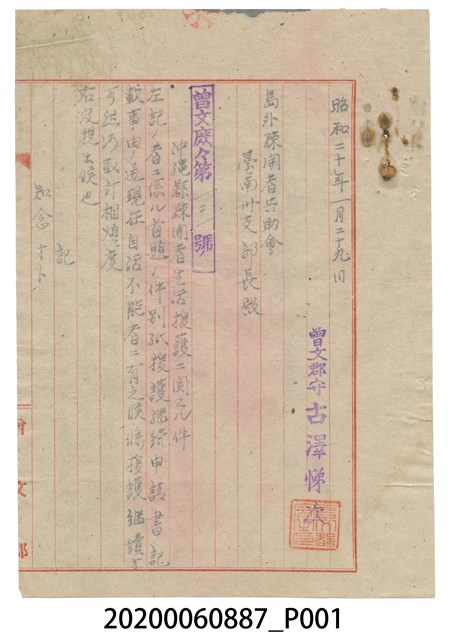 昭和二十年一月二十九日
曾文郡守 古澤悌次
島外疎開者共助會
臺南州支部長殿
曾文庶々第二號ノ
沖繩縣疎開者生活援護ニ関スル件
左記ノ者ニ係ル首題ノ件別紙援護繼続申請書記
載事由ノ通現在自活不能者ニ有之候條援護継續方
可然御取計相煩度
右及提出候也
記
知念
曾文郡
20200060887_P001